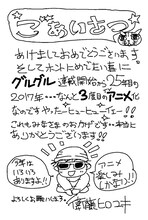 ごあいさつ
あけましておめでとうございます
そしてホントにめでたい事に
グルグル連載開始から25年目の
2017年…なんと3度目のアニメ化
なのですやったーヒューヒューでーす!!
これもみなさまのおかげです…本当に
ありがとうございます!!
今年は
いろいろ
ありますよ!!
アニメ
楽しみ
(かな)!!
よろしくお願いします。
衛藤ヒロユキ